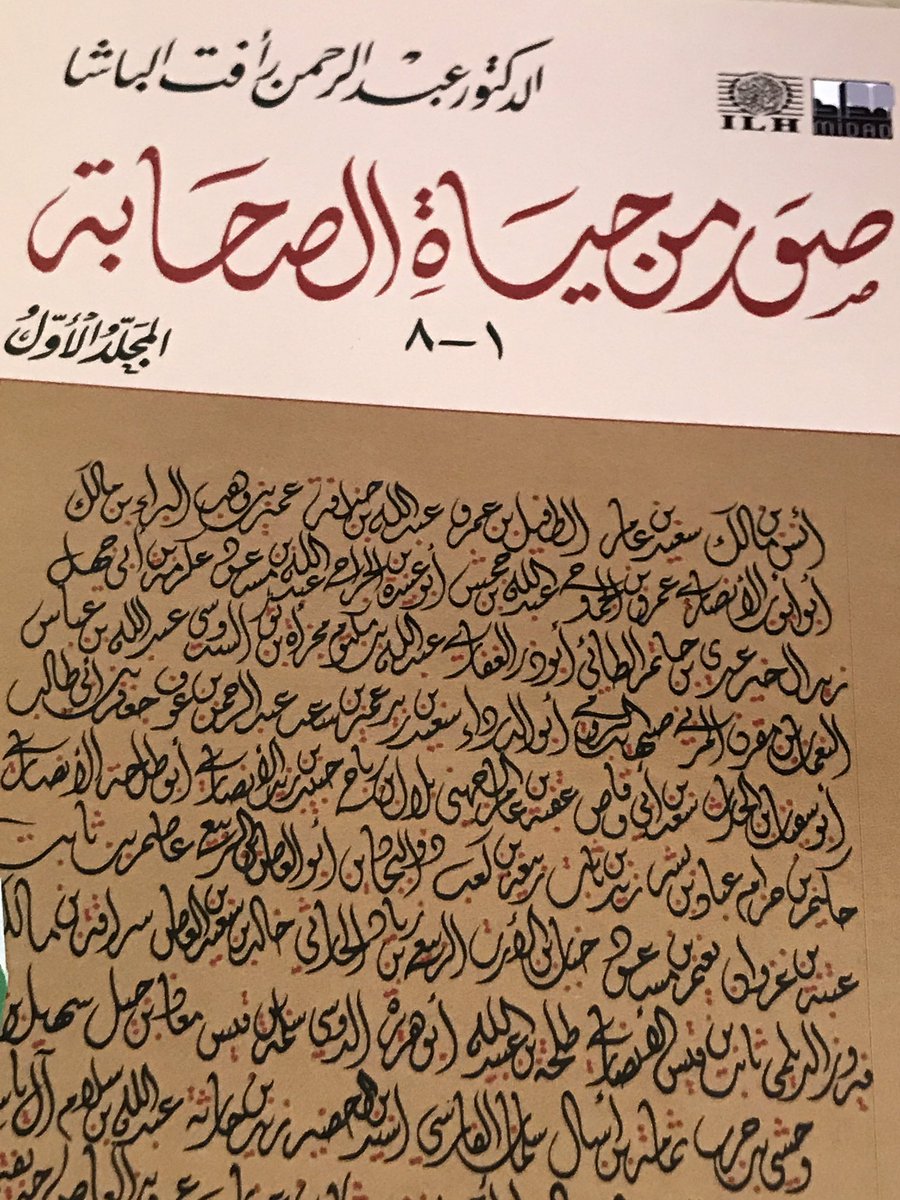 الدكتور عبد الرحمن رأفت الباشا
ILH
MIDAD
صور من حياة الصحابة
١-٨
المجلد الأول
أنس بن مالك سعيد بن عامر الطفيل بن عمرو عبد الله بن حذافة عمير بن وهب البراء بن مالك
أبو أيوب الأنصاري عمرو بن الجموح عبد الله بن جحش أبو عبيدة بن الجراح عبد الله بن مسعود عكرمة بن أبي جهل
زيد الخير عدي بن حاتم الطائي أبو ذر الغفاري عبد الله بن أم مكتوم مجزأة بن ثور السدوسي عبد الله بن عباس
النعمان بن مقرن المزني صهيب الرومي أبو الدرداء سعيد بن زيد عمير بن سعد عبد الرحمن بن عوف جعفر بن أبي طالب
أبو سفيان بن الحارث سعد بن أبي وقاص عقبة بن عامر الجهني بلال بن رباح حبيب بن زيد الأنصاري أبو طلحة الأنصاري
حكيم بن حزام عباد بن بشر زيد بن ثابت ربيعة بن كعب ذو البجادين أبو العاص بن الربيع عاصم بن ثابت
عتبة بن غزوان نعيم بن مسعود خباب بن الأرت الربيع بن زياد الحارثي خالد بن سعيد بن العاص سراقة بن مالك
فيروز الديلمي ثابت بن قيس الأنصاري طلحة بن عبيد الله أبو هريرة الدوسي سلمة بن قيس معاذ بن جبل سهيل بن
وحشي بن حرب ثمامة بن أثال سلمان الفارسي أسيد بن الحضير زيد بن حارثة عبد الله بن سلام آل ياسر